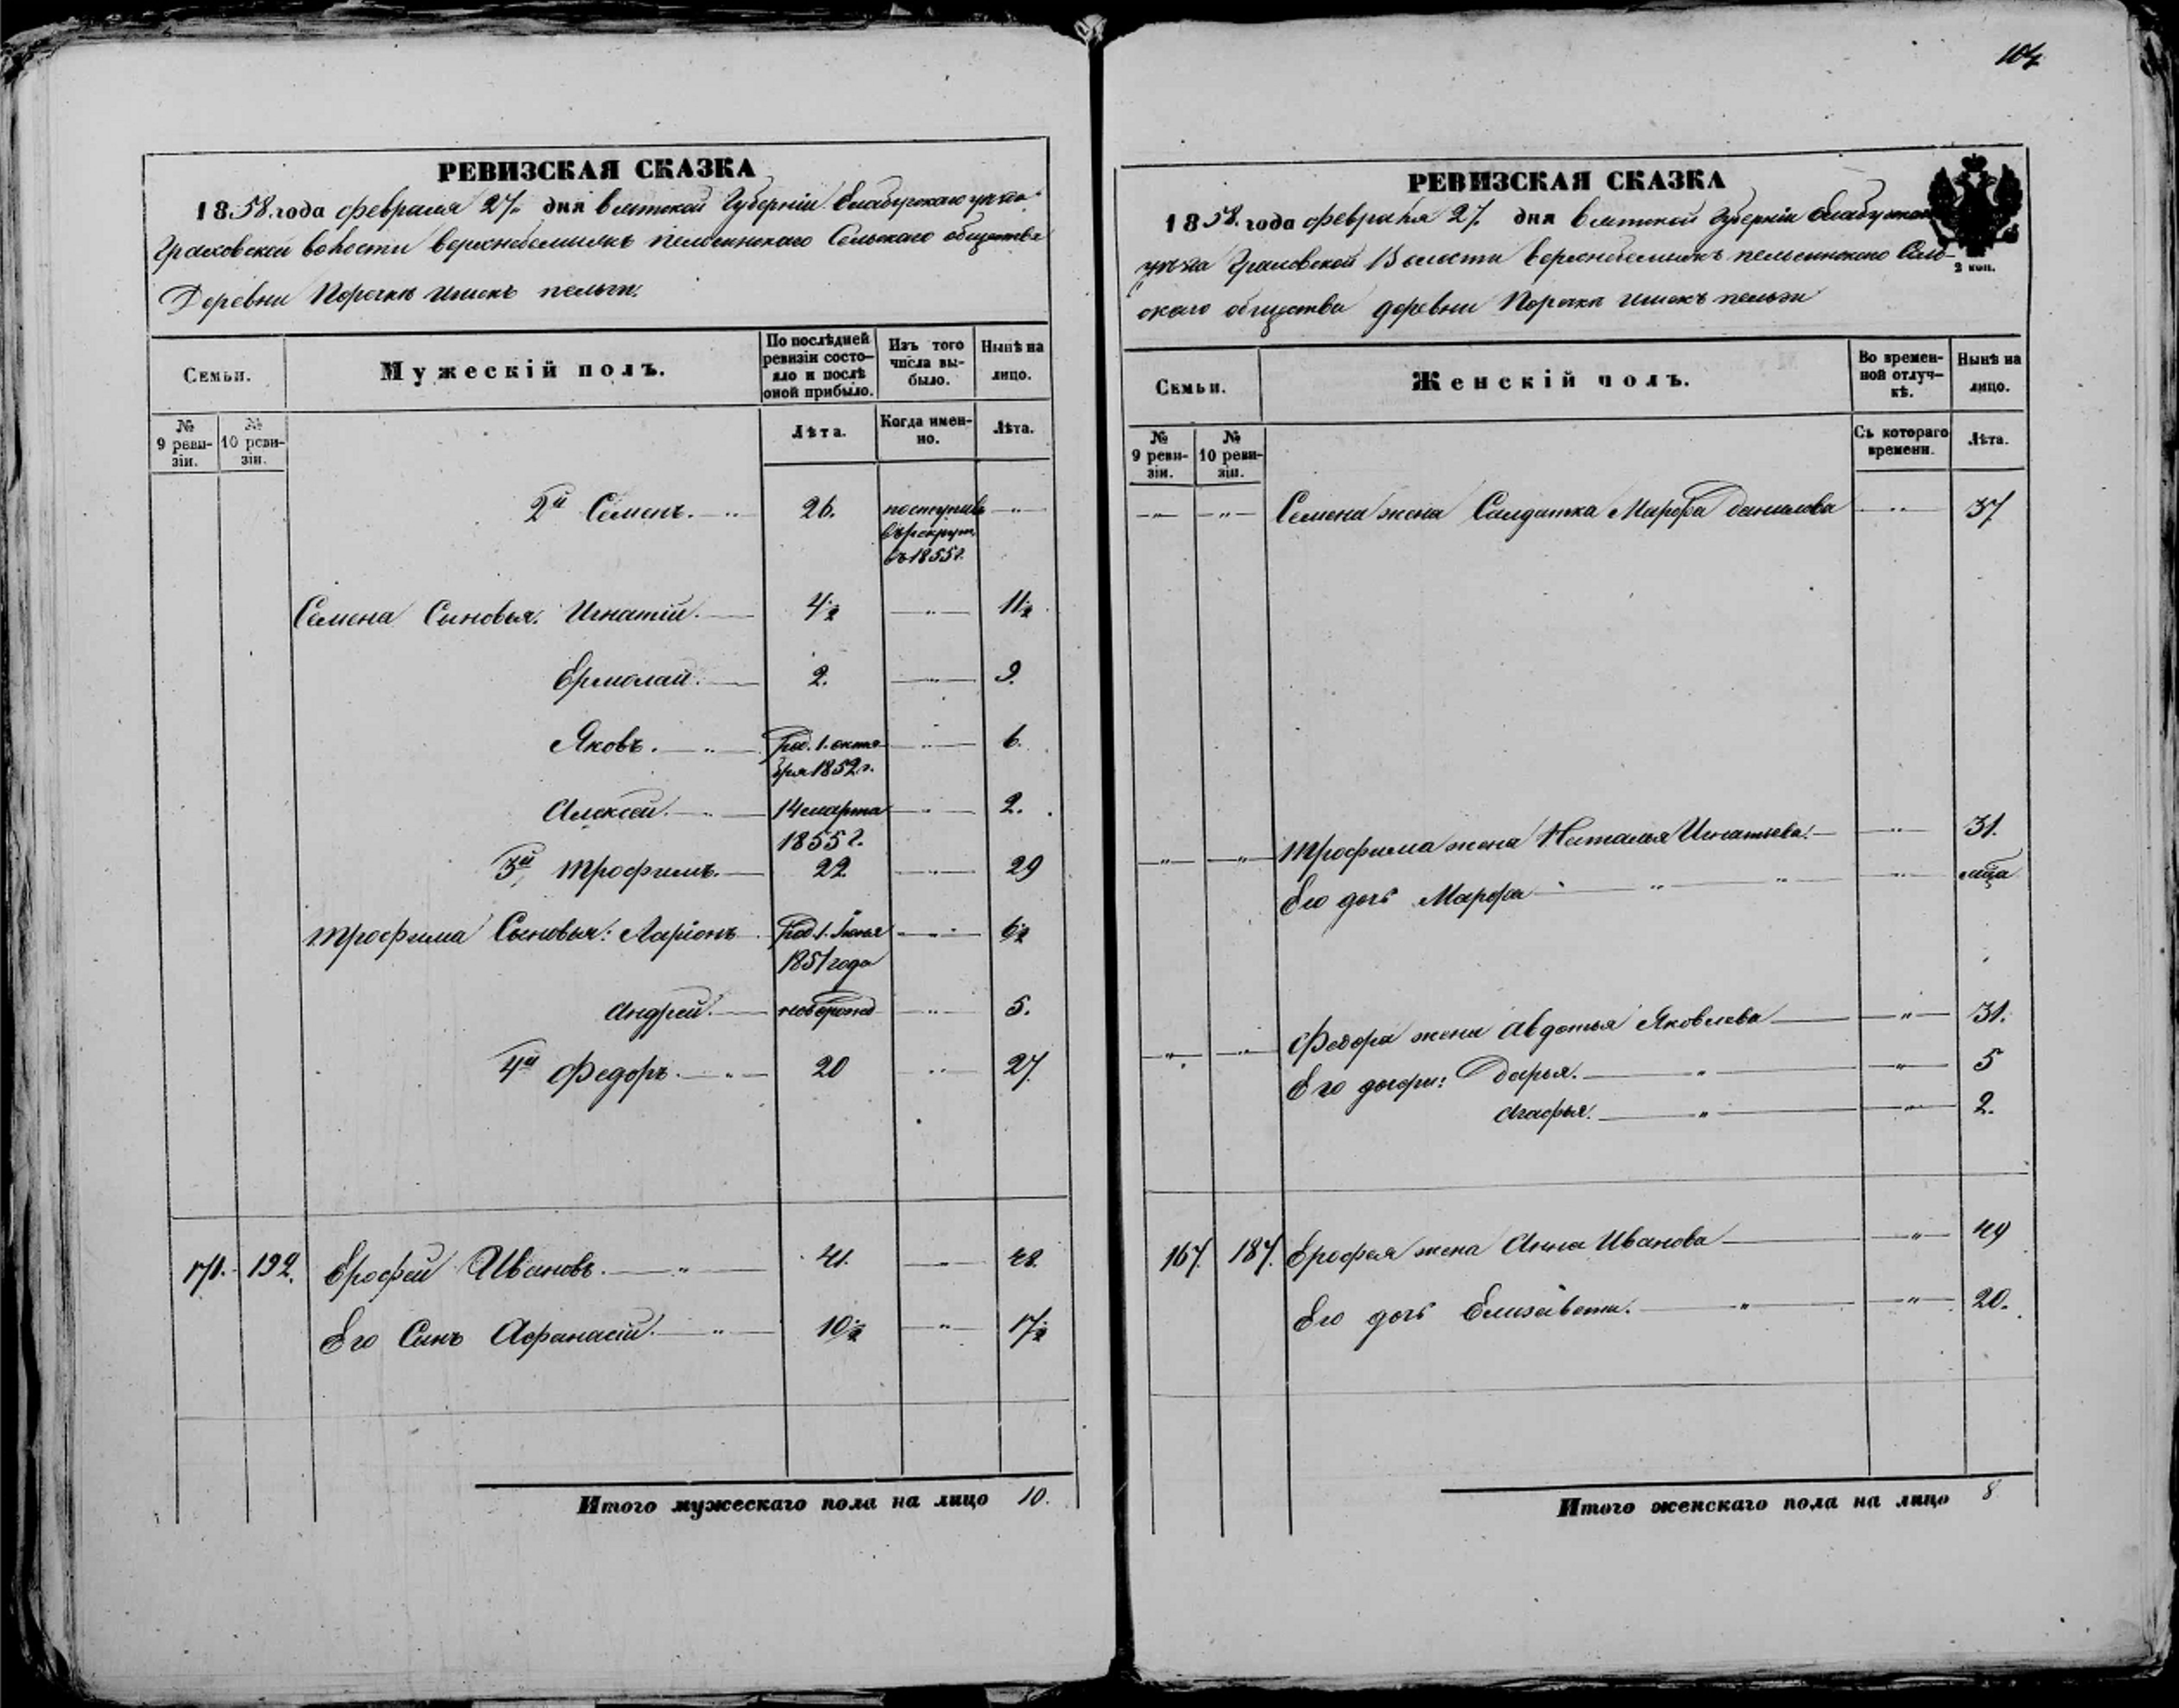 104
РЕВИЗСКАЯ СКАЗКА
1858 года февраля 27 дня Вятской Губерніи Елабужскаго уѣзда
Граховской волости верхнебемыжъ пельгинскаго Сельскаго общества
Деревни Порочкѣ ишекъ пельги.
Семьи.
Мужескій полъ.
По послѣдней ревизіи состояло и послѣ оной прибыло.
Изъ того числа выбыло.
Нынѣ на лицо.
№ 9 ревизіи.
№ 10 ревизіи.
Лѣта.
Когда именно.
Лѣта.
2й Семенъ. 26. поступилъ
въ рекрут.
въ 1855 г.
Семена Сыновья. Игнатій. 4½ 11½
Ермолай. 2. 9.
Яковъ. Род. 1. октя 6.
бря 1852 г.
Алексей. 14 марта 2.
1855 г.
3й Трофимъ. 22 29
Трофима Сыновья: Ларіонъ Род. 1. Іюня 6½
1851 года
Андрей. новорожд 5.
4й Федоръ. 20 27.
171. 192. Ерофей Ивановъ. 41. 48.
Его Сынъ Афанасій. 10½ 17½
Итого мужескаго пола на лицо 10.
РЕВИЗСКАЯ СКАЗКА
1858. года февраля 27. дня Вятской Губерніи Елабужскаго
уѣзда Граховской Волости верхнебемыжъ пельгинскаго Сель-
скаго общества деревни Порочкѣ ишекъ пельги
2 коп.
Семьи.
Женскій полъ.
Во временной отлучкѣ.
Нынѣ на лицо.
№ 9 ревизіи.
№ 10 ревизіи.
Съ котораго времени.
Лѣта.
Семена жена Салдатка Марфа Данилова 37
Трофима жена Наталья Игнатьева. 31.
Его дочь Марфа
Федора жена Авдотья Яковлева 31.
Его дочери: Дарья. 5
Агафья. 2.
167. 187. Ерофея жена Анна Иванова 49
Его дочь Елизавета. 20.
Итого женскаго пола на лицо 8